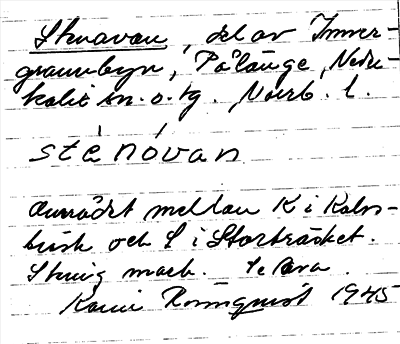 Stenovan, del av Inner-
grannbyn, Pålänge, Neder-
kalix sn. o. tg. Norrb. l.
stènóvan
Området mellan K i Kals-
busk och S i Storträsket.
Stenig mark.
Karin Rönnquist 1945